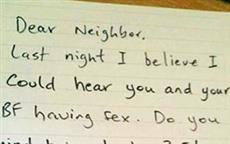 Dear Neighbor.
Last night I believe I
Could hear you and your
BF having sex. Do you